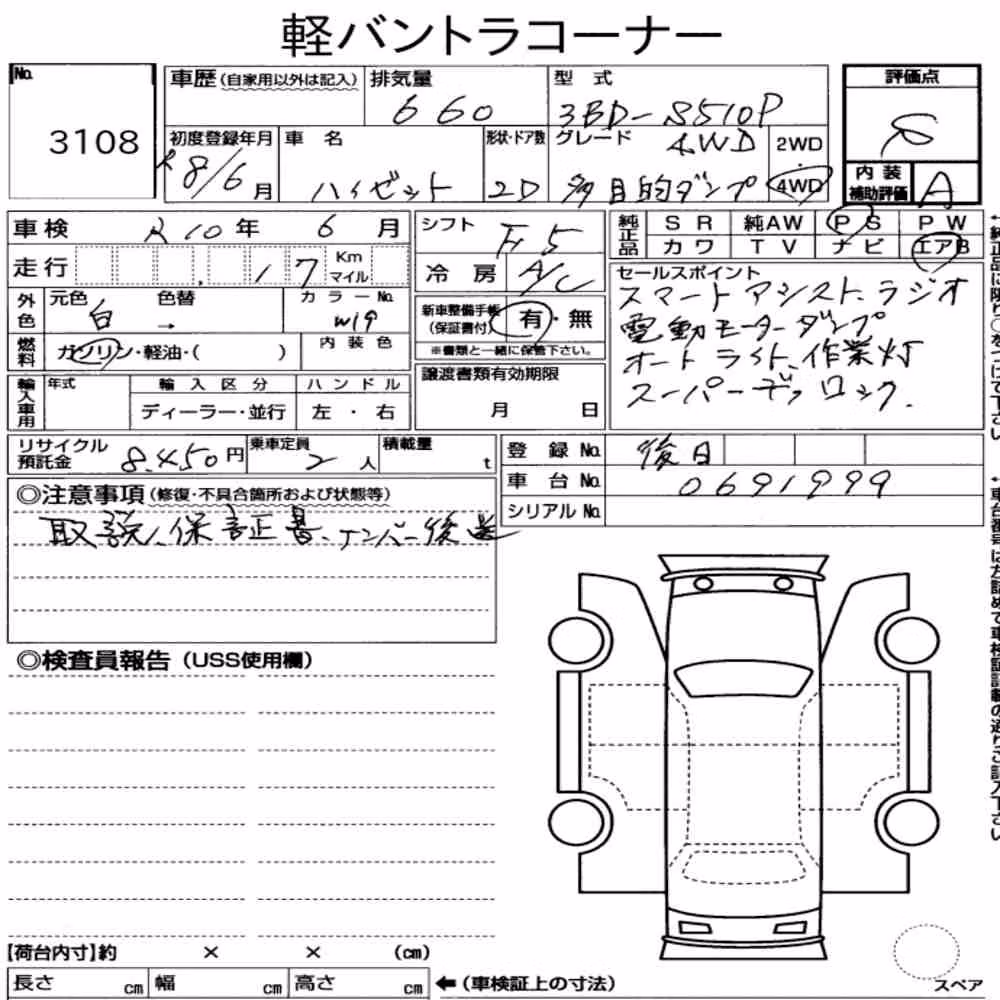 軽バントラコーナー
No. 3108
車歴(自家用以外は記入)
排気量 660
型式 3BD-S510P
評価点 S
初度登録年月 R8/6月
車名 ハイゼット
形状・ドア数 2D
グレード 4WD 多目的ダンプ
2WD・4WD
内装補助評価 A
車検 R10年 6月
シフト F5
純正品 SR 純AW PS PW
カワ TV ナビ エアB
走行 , 17 Km マイル
冷房 A/C
セールスポイント
スマートアシスト、ラジオ
電動モーターダンプ
オートライト、作業灯
スーパーデフロック.
外色 元色 白 → 色替 カラーNo. W19
新車整備手帳(保証書付) 有・無
※書類と一緒に保管下さい。
燃料 ガソリン・軽油・( )
内装色
譲渡書類有効期限
月 日
輸入車用 年式 輸入区分 ハンドル
ディーラー・並行 左・右
リサイクル預託金 8,450円
乗車定員 2人
積載量 t
登録No. 後日
車台No. 0691999
シリアルNo.
◎注意事項(修復・不具合箇所および状態等)
取説、保証書、ナンバー後送
◎検査員報告(USS使用欄)
【荷台内寸】約 × × (cm)
長さ cm 幅 cm 高さ cm ←(車検証上の寸法)
スペア